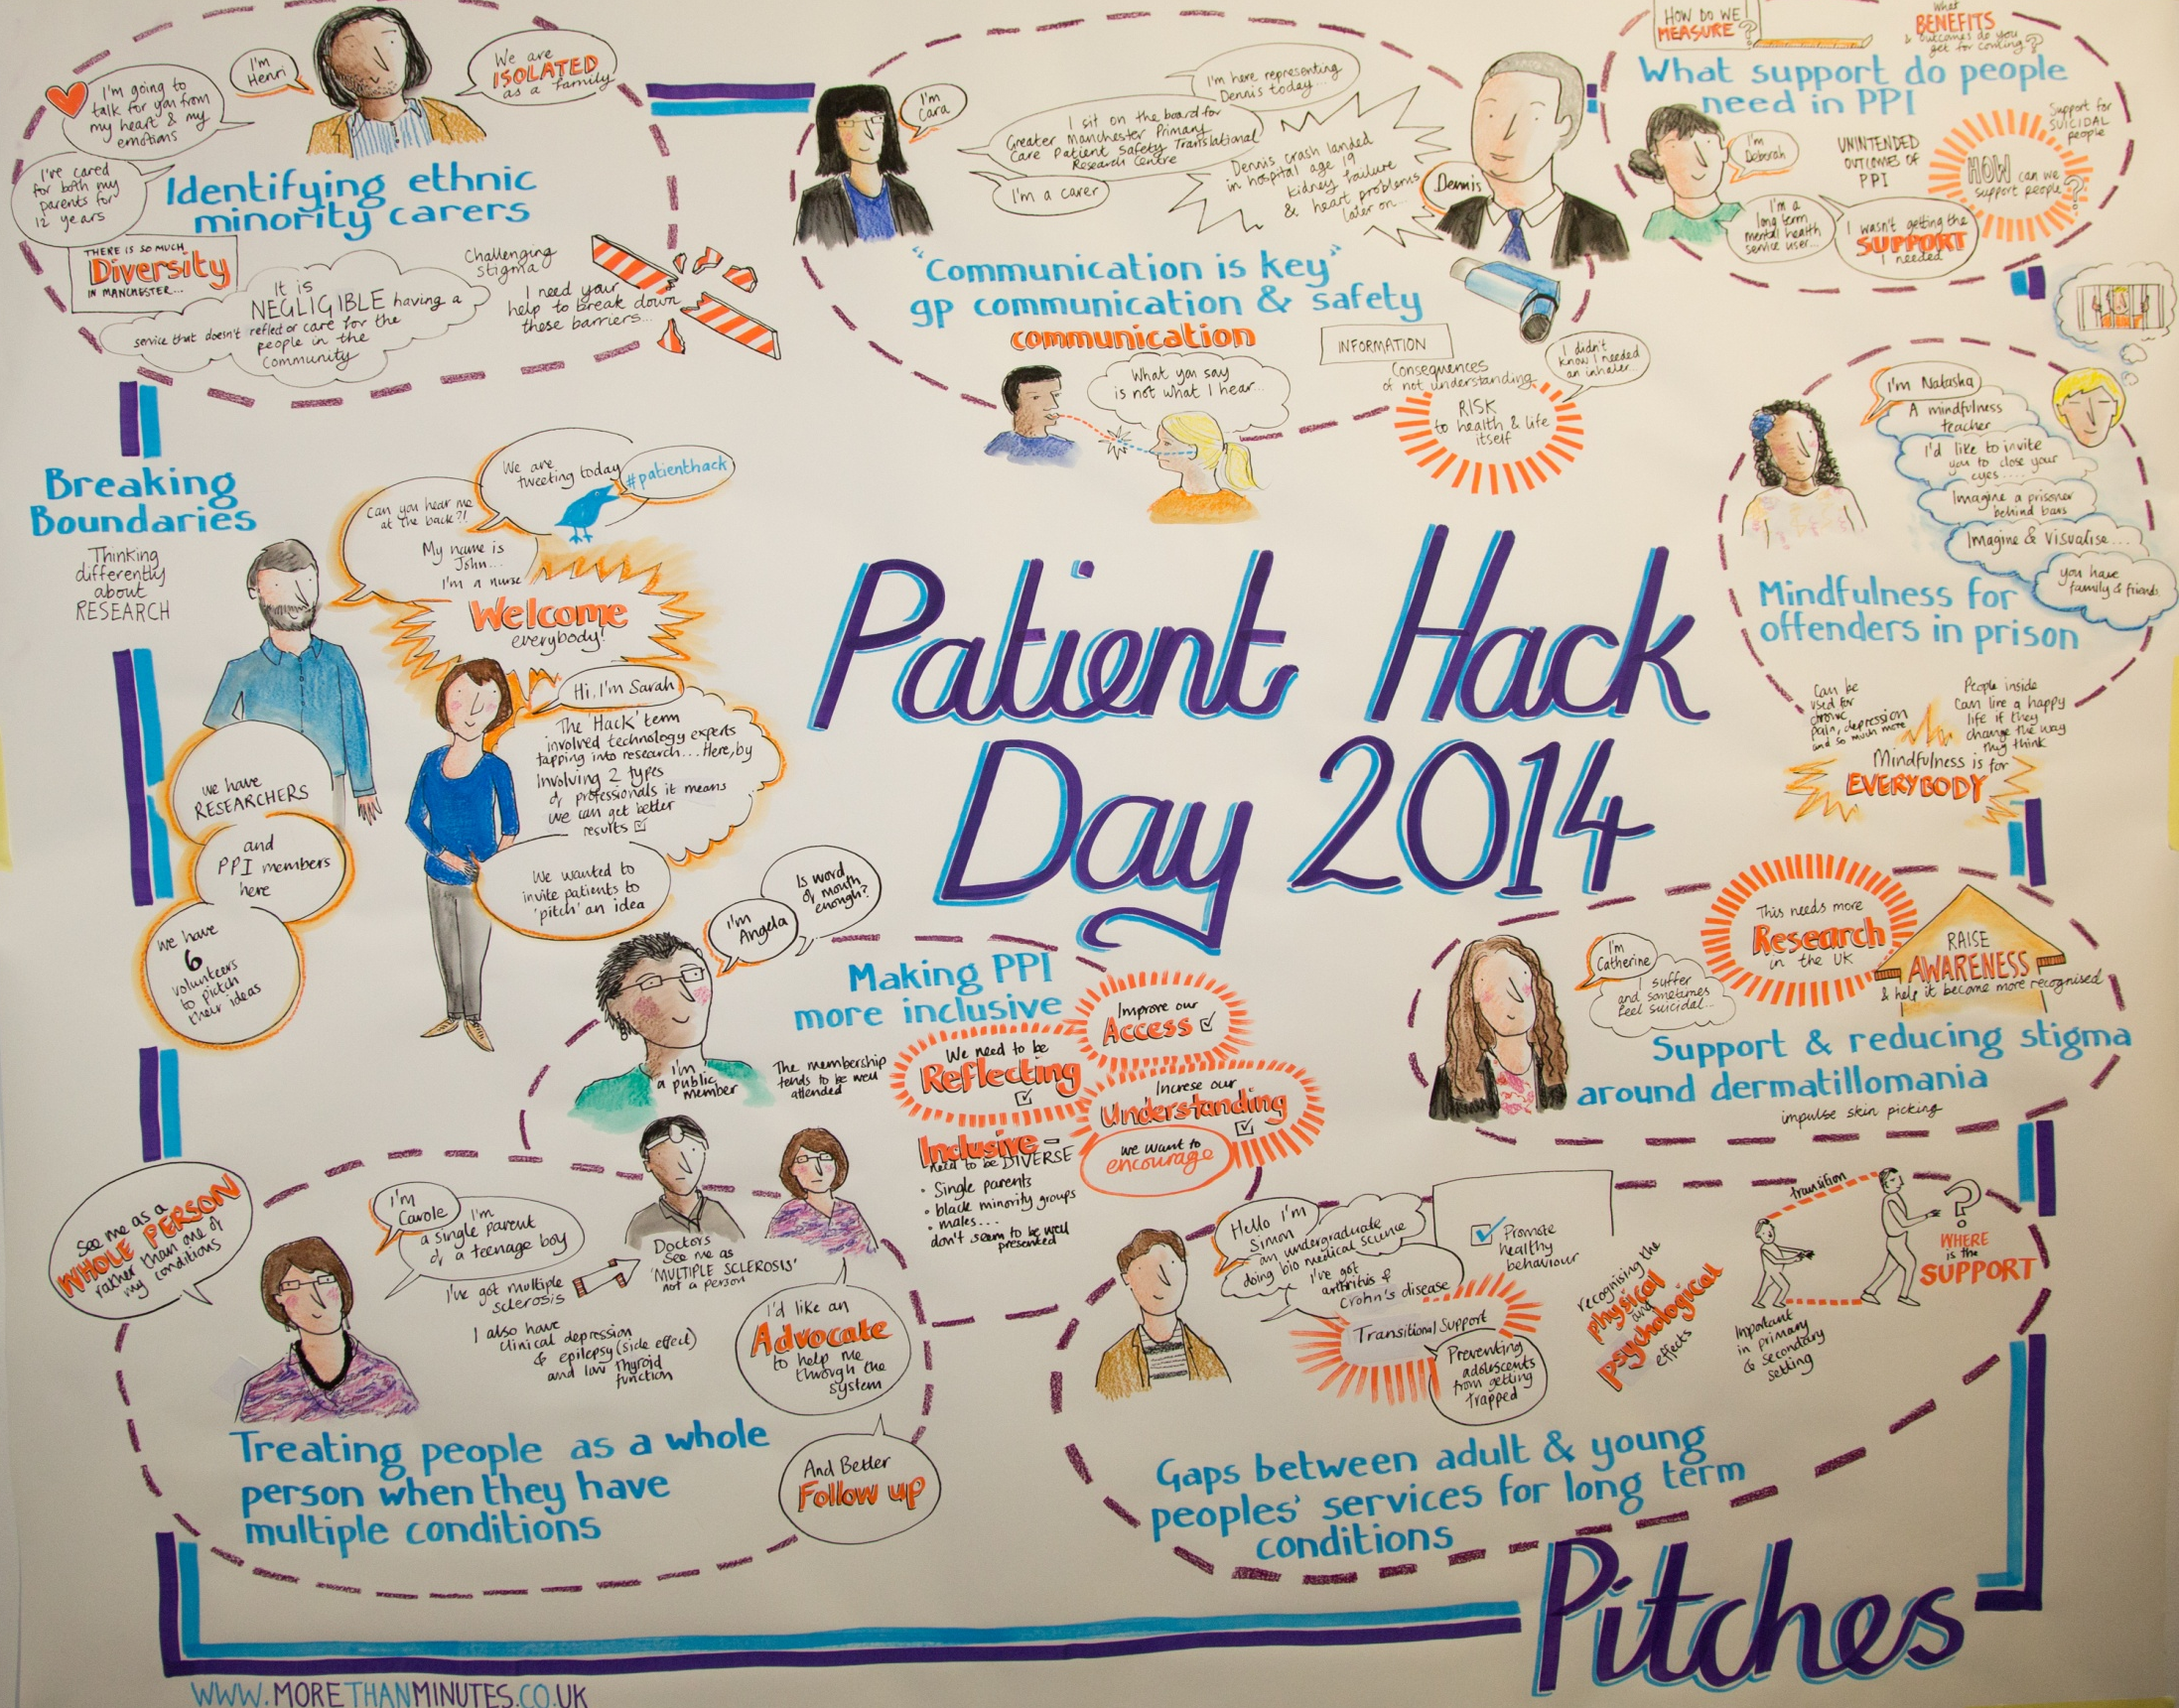 I'm going to
talk for you from
my heart & my
emotions
I'm
Henri
We are
ISOLATED
as a family
I've cared
for both my
parents for
12 years
Identifying ethnic
minority carers
THERE IS SO MUCH
Diversity
IN MANCHESTER...
It is
NEGLIGIBLE having a
service that doesn't reflect or care for the
people in the
Community
Challenging
stigma
I need your
help to break down
these barriers...
I'm
Cara
I'm here representing
Dennis today...
I sit on the board for
Greater Manchester Primary
Care Patient Safety Translational
Research Centre
I'm a carer
Dennis crash landed
in hospital age 19
kidney failure
& heart problems
later on...
Dennis
"Communication is key"
gp communication & safety
communication
What you say
is not what I hear...
INFORMATION
Consequences
of not understanding
RISK
to health & life
itself
I didn't
know I needed
an inhaler...
HOW DO WE
MEASURE?
What
BENEFITS
& outcomes do you
get for coming?
What support do people
need in PPI
I'm
Deborah
I'm a
long term
mental health
service user...
UNINTENDED
OUTCOMES OF
PPI
I wasn't getting the
SUPPORT
I needed
HOW can we
support people?
Support for
SUICIDAL
people
I'm Natasha
A mindfulness
teacher
I'd like to invite
you to close your
eyes....
Imagine a prisoner
behind bars
Imagine & visualise...
you have
family & friends
Mindfulness for
offenders in prison
Can be
used for
chronic
pain, depression
and so much more
People inside
Can live a happy
life if they
change the way
they think
Mindfulness is for
EVERYBODY
Breaking
Boundaries
Thinking
differently
about
RESEARCH
Can you hear me
at the back?!
My name is
John...
I'm a nurse
We are
tweeting today
#patienthack
Welcome
everybody!
Hi, I'm Sarah
The 'Hack' term
involved technology experts
tapping into research... Here, by
Involving 2 types
of professionals it means
we can get better
results
We wanted to
invite patients to
'pitch' an idea
we have
RESEARCHERS
and
PPI members
here
We have
6
volunteers
to pitch
their ideas
Patient Hack
Day 2014
I'm
Angela
Is word
of mouth
enough?
Making PPI
more inclusive
I'm
a public
member
The membership
tends to be well
attended
We need to be
Reflecting
Improve our
Access
Increse our
Understanding
we want to
encourage
Inclusive -
need to be DIVERSE
• Single parents
• black minority groups
• males...
don't seem to be well
presented
I'm
Catherine
I suffer
and sometimes
feel suicidal...
This needs more
Research
in the UK
RAISE
AWARENESS
& help it become more recognised
Support & reducing stigma
around dermatillomania
impulse skin picking
See me as a
WHOLE PERSON
rather than one of
my conditions
I'm
Carole
I'm
a single parent
of a teenage boy
I've got multiple
sclerosis
I also have
clinical depression
& epilepsy (side effect)
and low thyroid
function
Doctors
See me as
'MULTIPLE SCLEROSIS'
not a person
I'd like an
Advocate
to help me
through the
system
And Better
Follow up
Treating people as a whole
person when they have
multiple conditions
Hello I'm
Simon
an undergraduate
doing bio medical science
I've got
arthritis &
Crohn's disease
Transitional Support
Preventing
adolescents
from getting
trapped
Promote
healthy
behaviour
recognising the
physical
and
psychological
effects
transition
WHERE
is the
SUPPORT
Important
in primary
& secondary
setting
Gaps between adult & young
peoples' services for long term
conditions
Pitches
WWW.MORETHANMINUTES.CO.UK